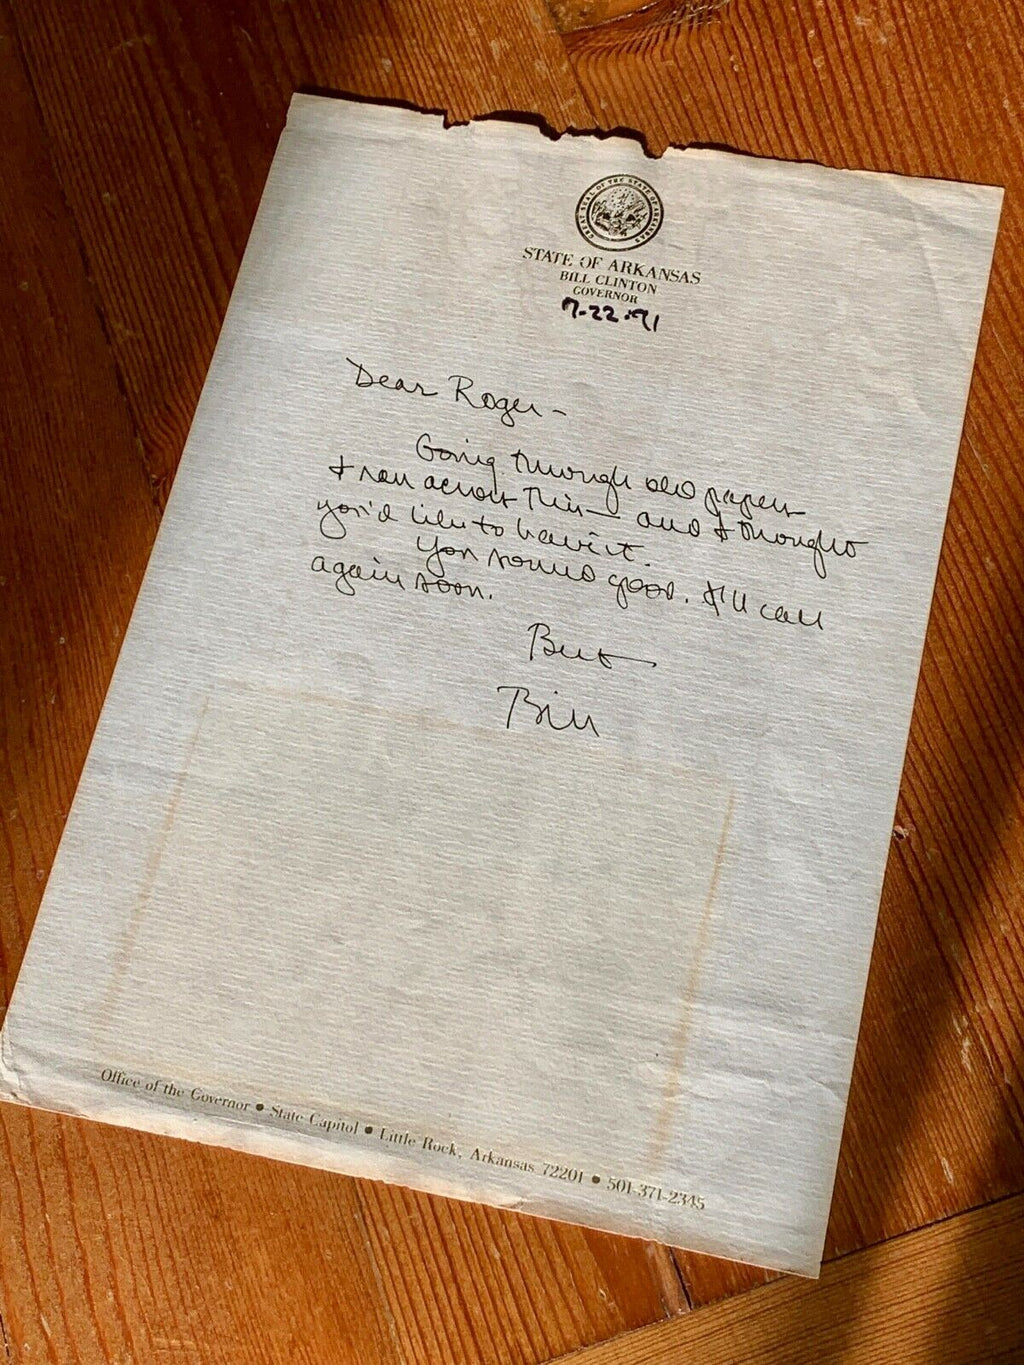 GREAT SEAL OF THE STATE OF ARKANSAS
STATE OF ARKANSAS
BILL CLINTON
GOVERNOR
7.22.91
Dear Roger –
Going through old papers
I ran across this – and I thought
you'd like to have it.
You sound good. I'll call
again soon.
Best
Bill
Office of the Governor • State Capitol • Little Rock, Arkansas 72201 • 501-371-2345